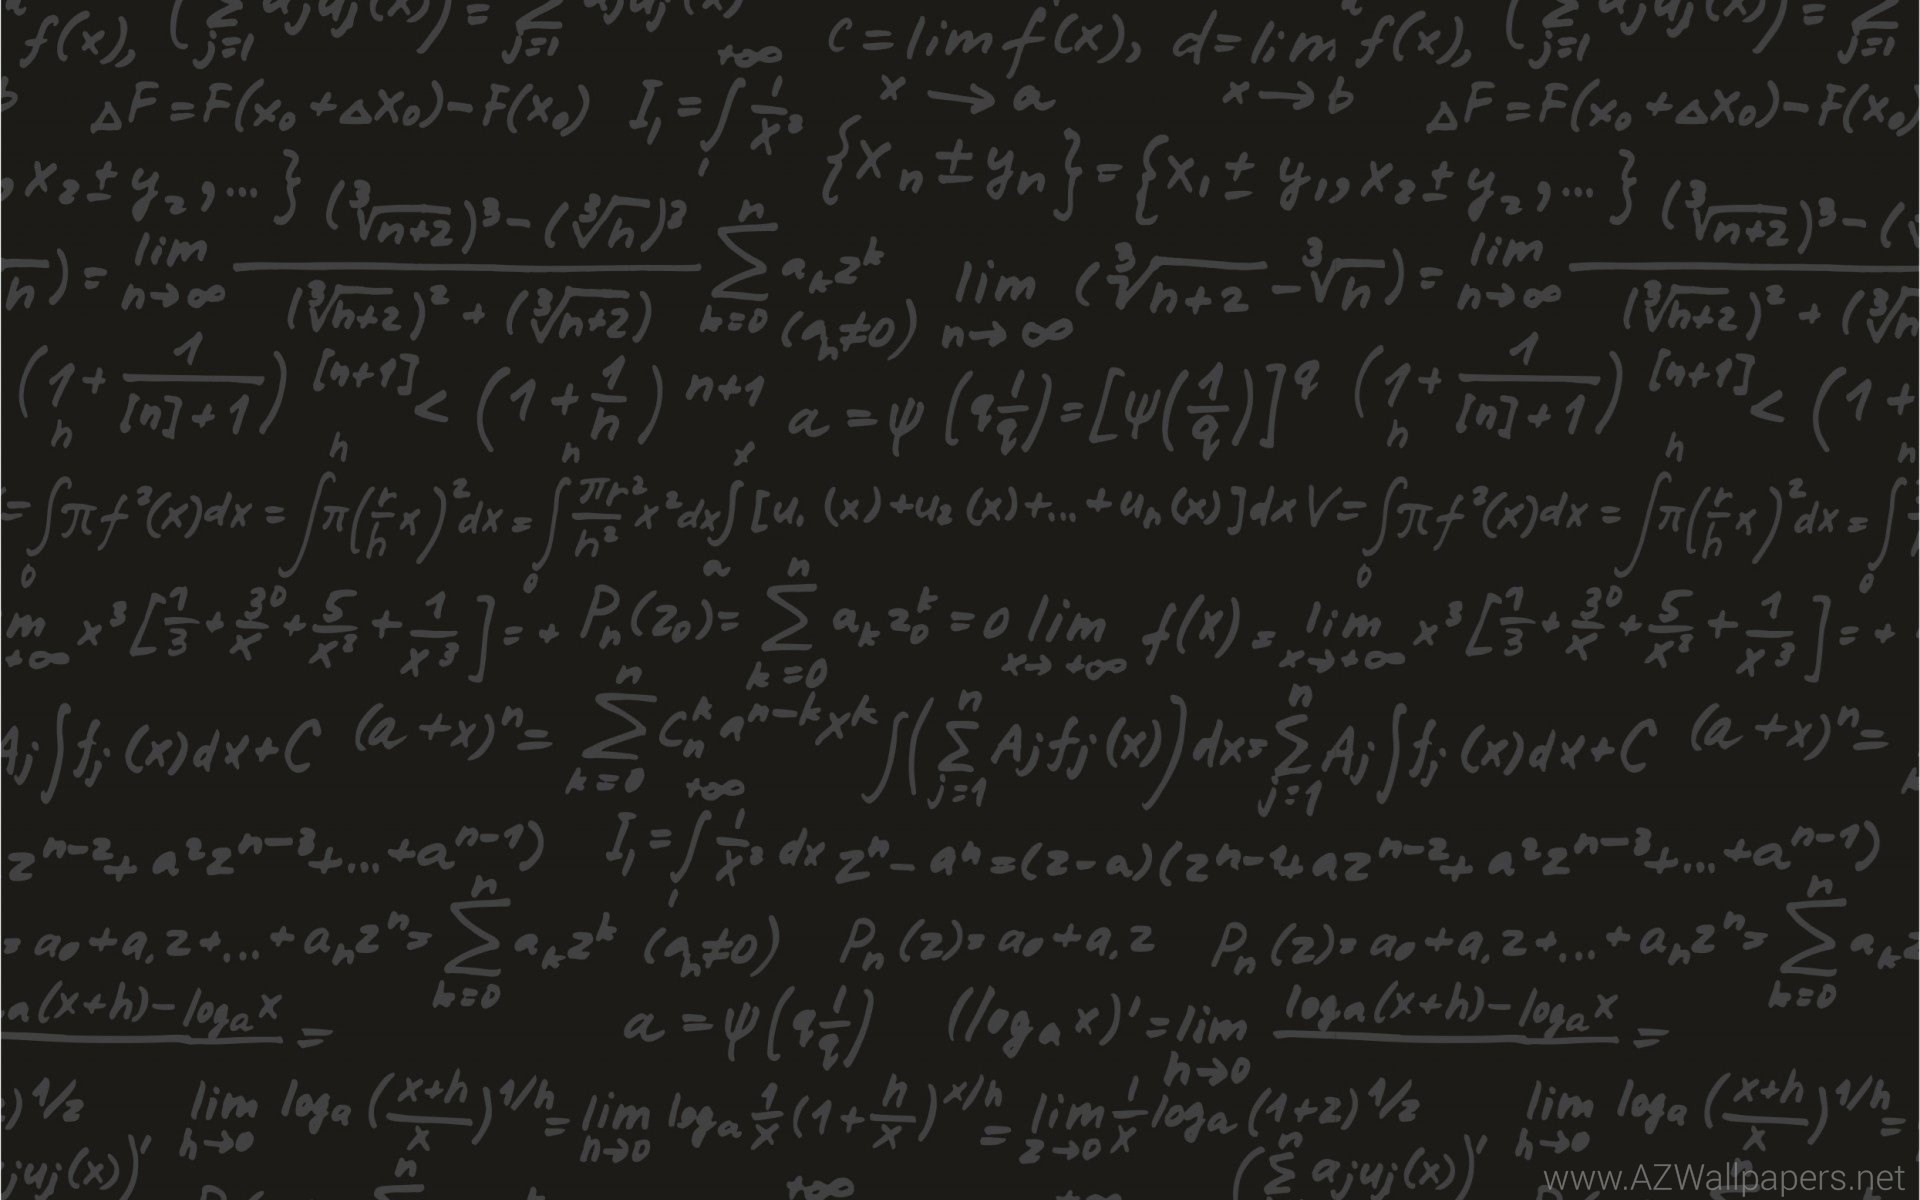 f(x), (∑ j=1 ajuj(x)) = ∑ j=1 ajuj(x) c = lim x→a f(x), d = lim x→b f(x), (∑ j=1 ajuj(x)) = ∑ j=1
b ΔF = F(x₀ + Δx₀) - F(x₀) I₁ = ∫₁^{+∞} 1/x² ΔF = F(x₀ + Δx₀) - F(x₀)
x₂ ± y₂, ... } {xₙ ± yₙ} = {x₁ ± y₁, x₂ ± y₂, ... }
√n) = lim n→∞ ((∛(n+2))³ - (∛n)³) / ((∛(n+2))² + (∛(n+2)) ∑ k=0 n aₖzᵏ (aₙ≠0) lim n→∞ (∛(n+2) - ∛n) = lim n→∞ ((∛(n+2))³ - ( / ((∛(n+2))² + (∛n
(1 + 1/([n]+1))^[n+1] < (1 + 1/n)^n+1 a = ψ(q 1/q) = [ψ(1/q)]^q (1 + 1/([n]+1))^[n+1] < (1 +
= ∫₀^h πf²(x)dx = ∫^h π(r/h x)²dx = ∫₀^h πr²/h² x²dx ∫ₐ^x [u₁(x) + u₂(x) + ... + uₙ(x)]dx V = ∫₀^h πf²(x)dx = ∫^h π(r/h x)²dx = ∫₀^h
m +∞ x³[1/3 + 30/x + 5/x² + 1/x³] = + Pₙ(z₀) = ∑ k=0 n aₖz₀ᵏ = 0 lim x→+∞ f(x) = lim x→+∞ x³[1/3 + 30/x + 5/x² + 1/x³] = +
Aj∫fj(x)dx + C (a + x)ⁿ = ∑ k=0 n Cₙᵏ aⁿ⁻ᵏxᵏ ∫(∑ j=1 n Ajfj(x))dx = ∑ j=1 n Aj∫fj(x)dx + C (a + x)ⁿ =
zⁿ⁻² + a²zⁿ⁻³ + ... + aⁿ⁻¹) I₁ = ∫₁^{+∞} 1/x² dx zⁿ - aⁿ = (z - a)(zⁿ⁻¹ + azⁿ⁻² + a²zⁿ⁻³ + ... + aⁿ⁻¹)
= a₀ + a₁z + ... + aₙzⁿ = ∑ k=0 n aₖzᵏ (aₙ≠0) Pₙ(z) = a₀ + a₁z Pₙ(z) = a₀ + a₁z + ... + aₙzⁿ = ∑ k=0 n aₖz
a(x+h) - logₐx = a = ψ(q 1/q) (logₐx)' = lim h→0 (logₐ(x+h) - logₐx) =
)^1/z lim h→0 logₐ((x+h)/x)^1/h = lim h→0 logₐ 1/x (1 + h/x)^x/h = lim z→0 1/x logₐ(1+z)^1/z lim h→0 logₐ((x+h)/x)^1/h =
juj(x))' n +∞ (∑ n ajuj(x))'
www.AZWallpapers.net